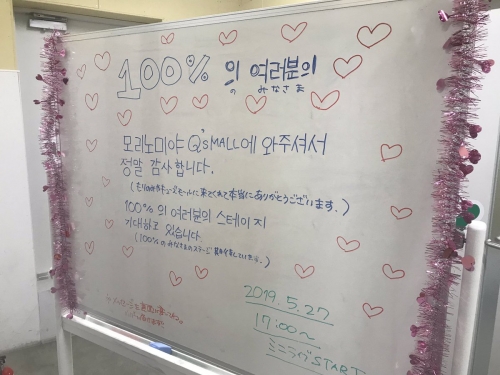 100% 의 여러분의
の みなさま
모리노미야 Q'sMALL에 와주셔서
정말 감사합니다.
に来てくれて本当にありがとうございます。)
100% 의 여러분의 스테이지
기대하고 있습니다
(100%のみなさまのステージ
2019.5.27
17:00〜
ミニライブSTART